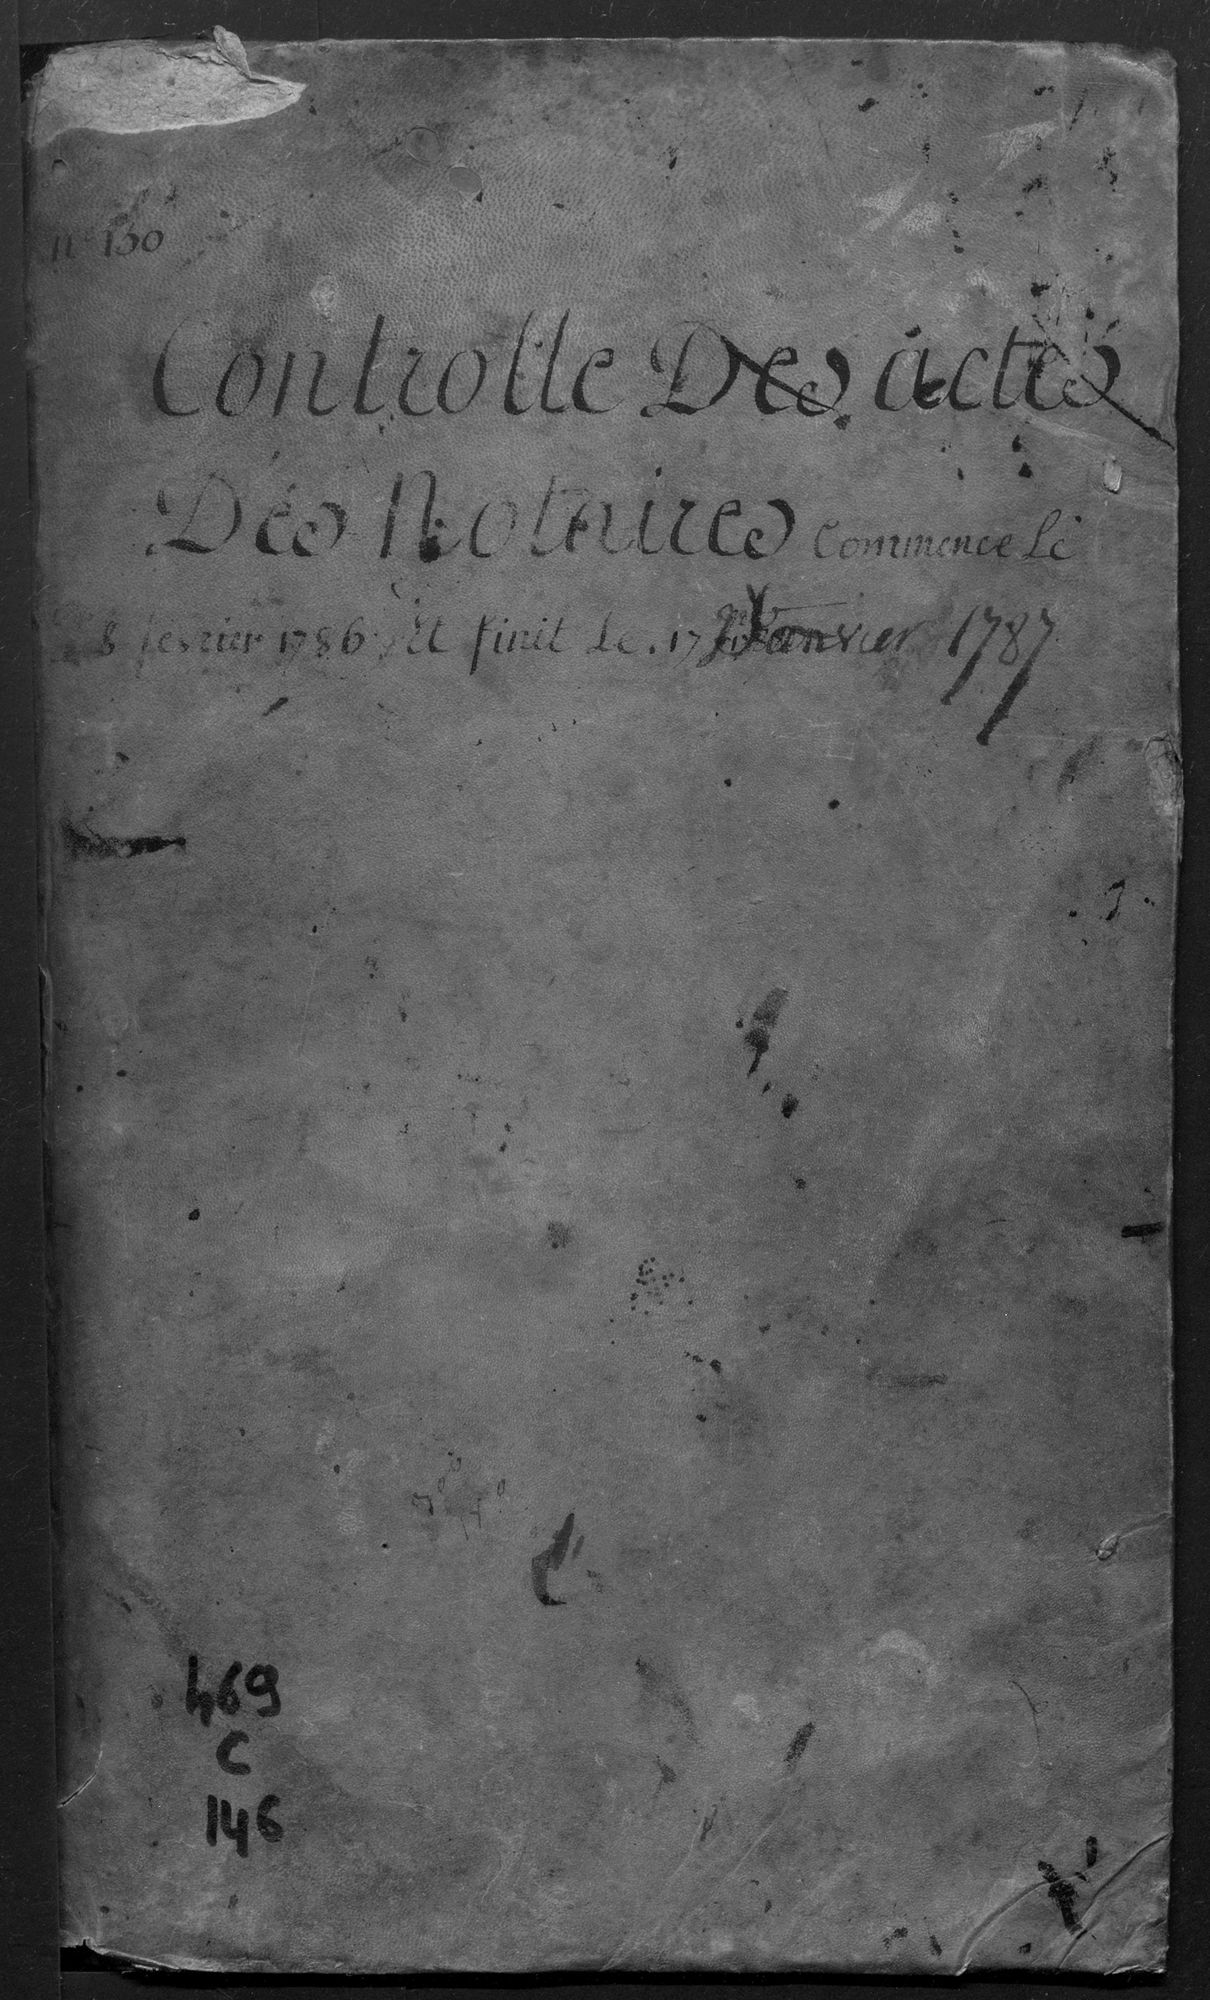 n° 130
Controlle Des actes
Des Notaires Commence Le
8 fevrier 1786 Et finit Le 17 Janvier 1787
469
C
146